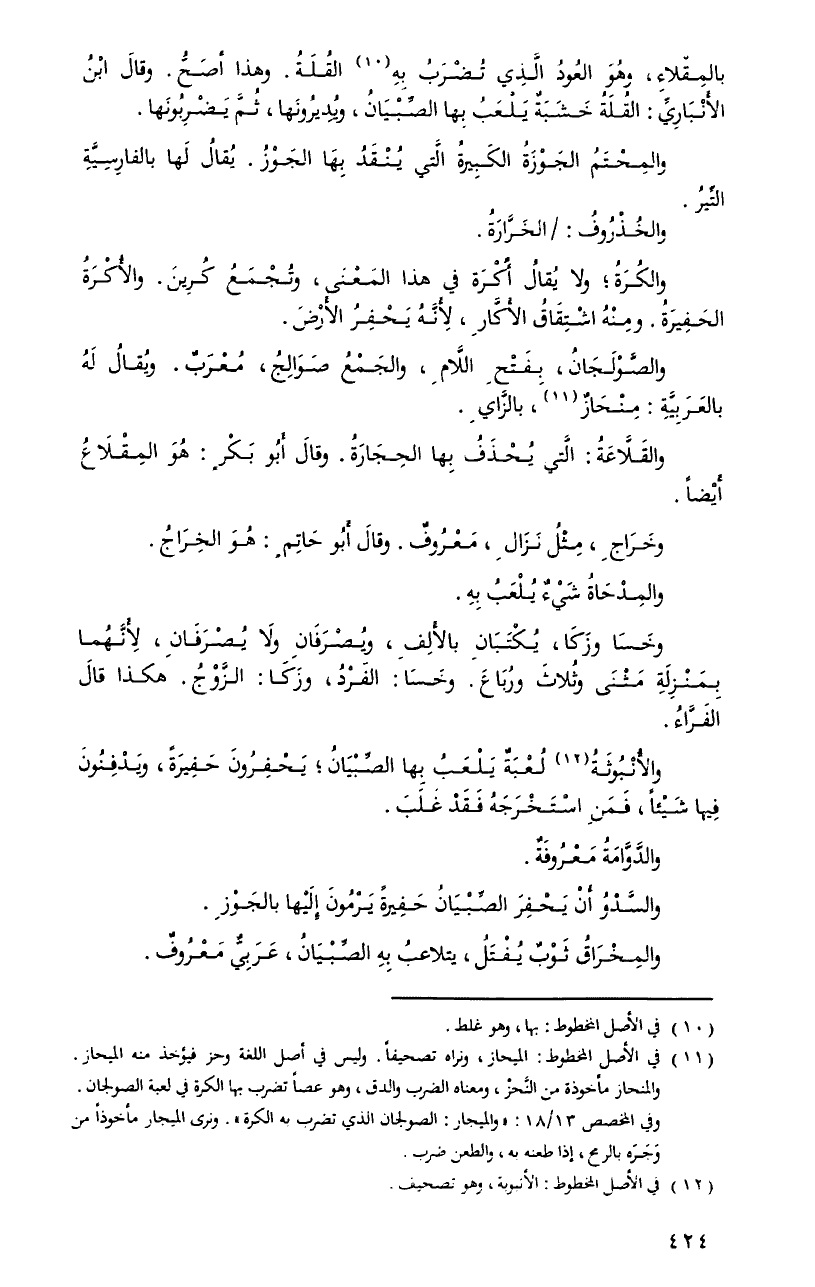 بالمِقْلاءِ، وهُوَ العُودُ الَّذِي تُضْرَبُ بِهِ(١٠) القُلَةُ. وهذا أصَحُّ. وقالَ ابْنُ
الأَنْبَارِيِّ: القُلَةُ خَشَبَةٌ يَلْعَبُ بها الصِّبْيَانُ، ويُدِيرُونَها، ثُمَّ يَضْرِبُونَها.
والمِخْتَمُ الجَوْزَةُ الكَبِيرةُ الَّتي يُنْقَدُ بِهَا الجَوْزُ. يُقالُ لَها بالفارِسِيَّةِ
التِّيرُ.
والخُذْرُوفُ: / الخَرَّارَةُ.
والكُرَةُ؛ ولا يُقالُ أُكْرَة في هذا المَعْنَى، وتُجْمَعُ كُرِينَ. والأُكْرَةُ
الحَفِيرَةُ. ومِنْهُ اشْتِقَاقُ الأكَّارِ، لِأَنَّهُ يَحْفِرُ الأَرْضَ.
والصَّوْلَجَانُ، بِفَتْحِ اللَّامِ، والجَمْعُ صَوَالِجُ، مُعْرَبٌ. ويُقالُ لَهُ
بالعَرَبِيَّةِ: مِنْحَازٌ(١١)، بالزَّايِ.
والقَلَّاعَةُ: الَّتي يُحْذَفُ بها الحِجَارَةُ. وقالَ أَبُو بَكْرٍ: هُوَ المِقْلَاعُ
أيْضاً.
وخَرَاجِ، مِثْلُ نَزَالِ، مَعْرُوفٌ. وقالَ أَبُو حَاتِمٍ: هُوَ الخِرَاجُ.
والمِدْحَاةُ شَيْءٌ يُلْعَبُ بِهِ.
وخَسَا وزَكَا، يُكْتَبَانِ بالألِفِ، ويُصْرَفَانِ ولَا يُصْرَفَانِ، لِأَنَّهُما
بِمَنْزِلَةِ مَثْنَى وثُلاثَ ورُبَاعَ. وخَسَا: الفَرْدُ، وزَكَا: الزَّوْجُ. هكذا قالَ
الفَرَّاءُ.
والأُنْبُوثَةُ(١٢) لُعْبَةٌ يَلْعَبُ بها الصِّبْيَانُ؛ يَحْفِرُونَ حَفِيرَةً، ويَدْفِنُونَ
فِيها شَيْئاً، فَمَنِ اسْتَخْرَجَهُ فَقَدْ غَلَبَ.
والدَّوَّامَةُ مَعْرُوفَةٌ.
والسَّدْوُ أَنْ يَحْفِرَ الصِّبْيَانُ حَفِيرةً يَرْمُونَ إِلَيْها بالجَوْزِ.
والمِخْرَاقُ ثَوْبٌ يُفْتَلُ، يتلاعبُ بِهِ الصِّبْيَانُ، عَرَبِيٌّ مَعْرُوفٌ.
(١٠) في الأصل المخطوط: بها، وهو غلط.
(١١) في الأصل المخطوط: الميحاز، ونراه تصحيفاً. وليس في أصل اللغة وحز فيؤخذ منه الميحاز.
والمنحاز مأخوذة من النَّحز، ومعناه الضرب والدق، وهو عصاً تضرب بها الكرة في لعبة الصولجان.
وفي المخصص ١٨/١٣: «والميجار: الصولجان الذي تضرب به الكرة». ونرى الميجار مأخوذاً من
وَجَرَه بالرمح، إذا طعنه به، والطعن ضرب.
(١٢) في الأصل المخطوط: الأنبوبة، وهو تصحيف.
٤٢٤